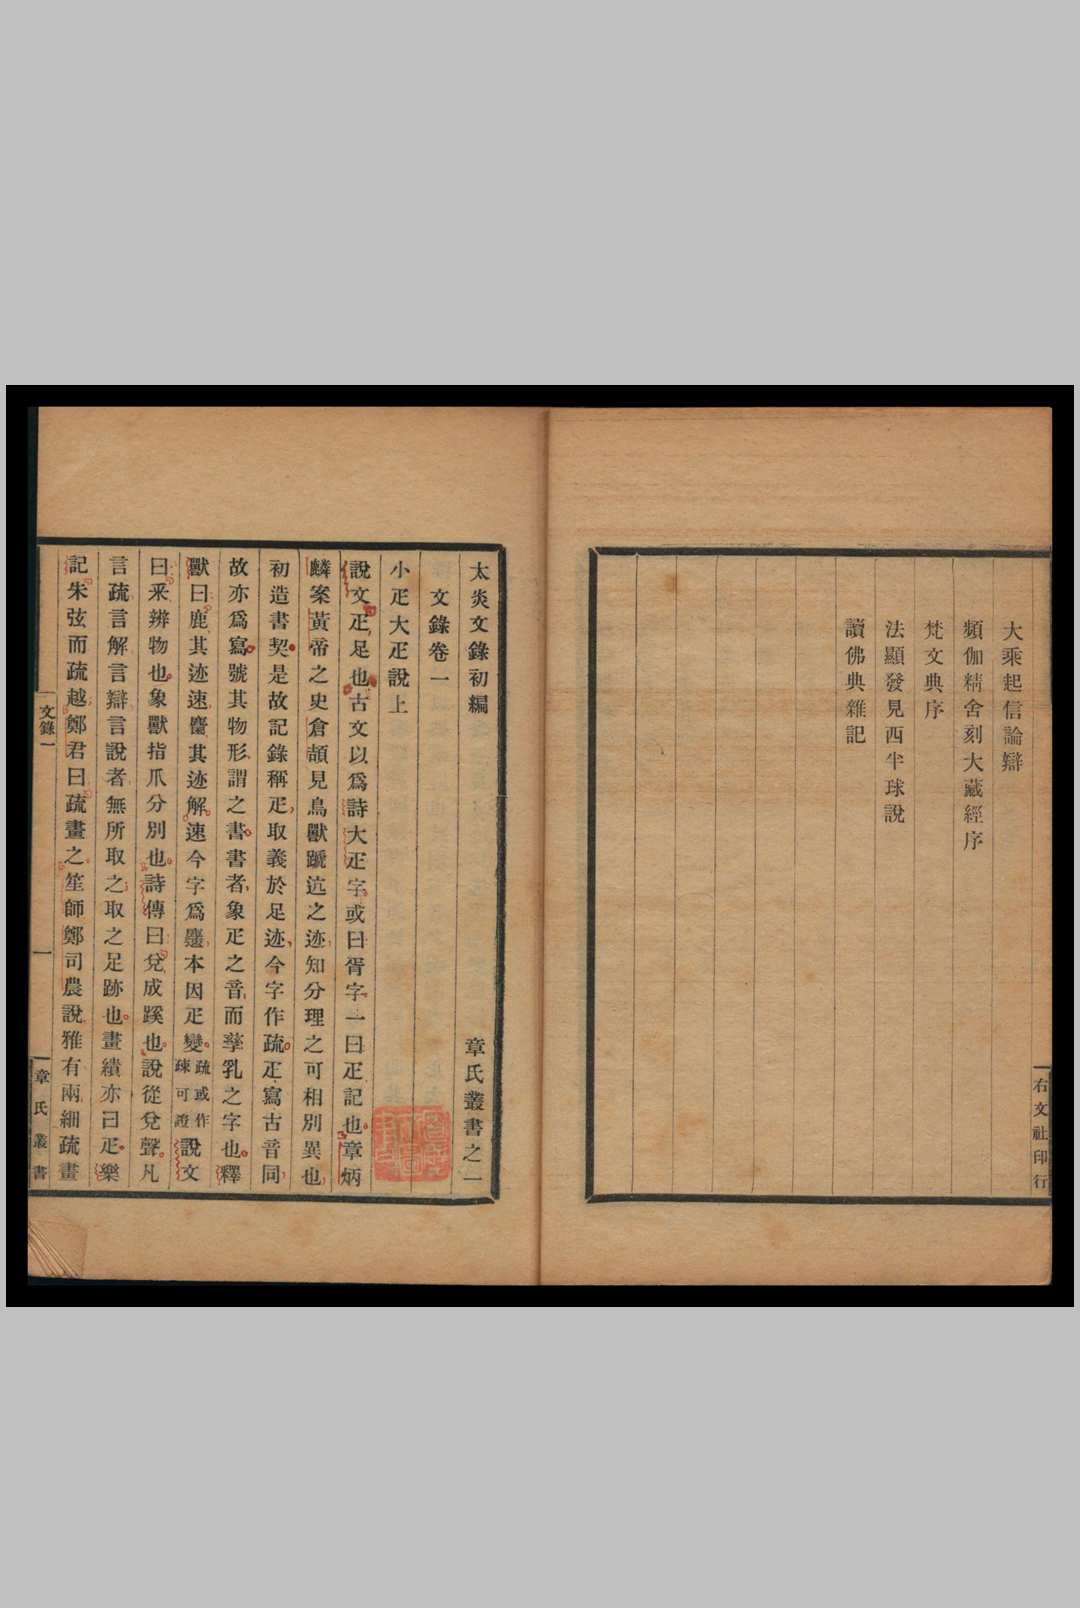 右文社印行
大乘起信論辯
頻伽精舍刻大藏經序
梵文典序
法顯發見西半球說
讀佛典雜記
太炎文錄初編
章氏叢書之一
文錄卷一
小疋大疋說上
說文疋足也古文以爲詩大疋字或曰胥字一曰疋記也章炳
麟案黃帝之史倉頡見鳥獸蹏迒之迹知分理之可相別異也
初造書契是故記錄稱疋取義於足迹今字作疏疋寫古音同
故亦爲寫號其物形謂之書書者象疋之音而孳乳之字也釋
獸曰鹿其迹速麕其迹解速今字爲躧本因疋變疏或作疎可證說文
曰釆辨物也象獸指爪分別也詩傳曰兌成蹊也說從兌聲凡
言疏言解言辯言說者無所取之取之足跡也畫繢亦曰疋樂
記朱弦而疏越鄭君曰疏畫之笙師鄭司農說雅有兩細疏畫
文錄一
一
章氏叢書